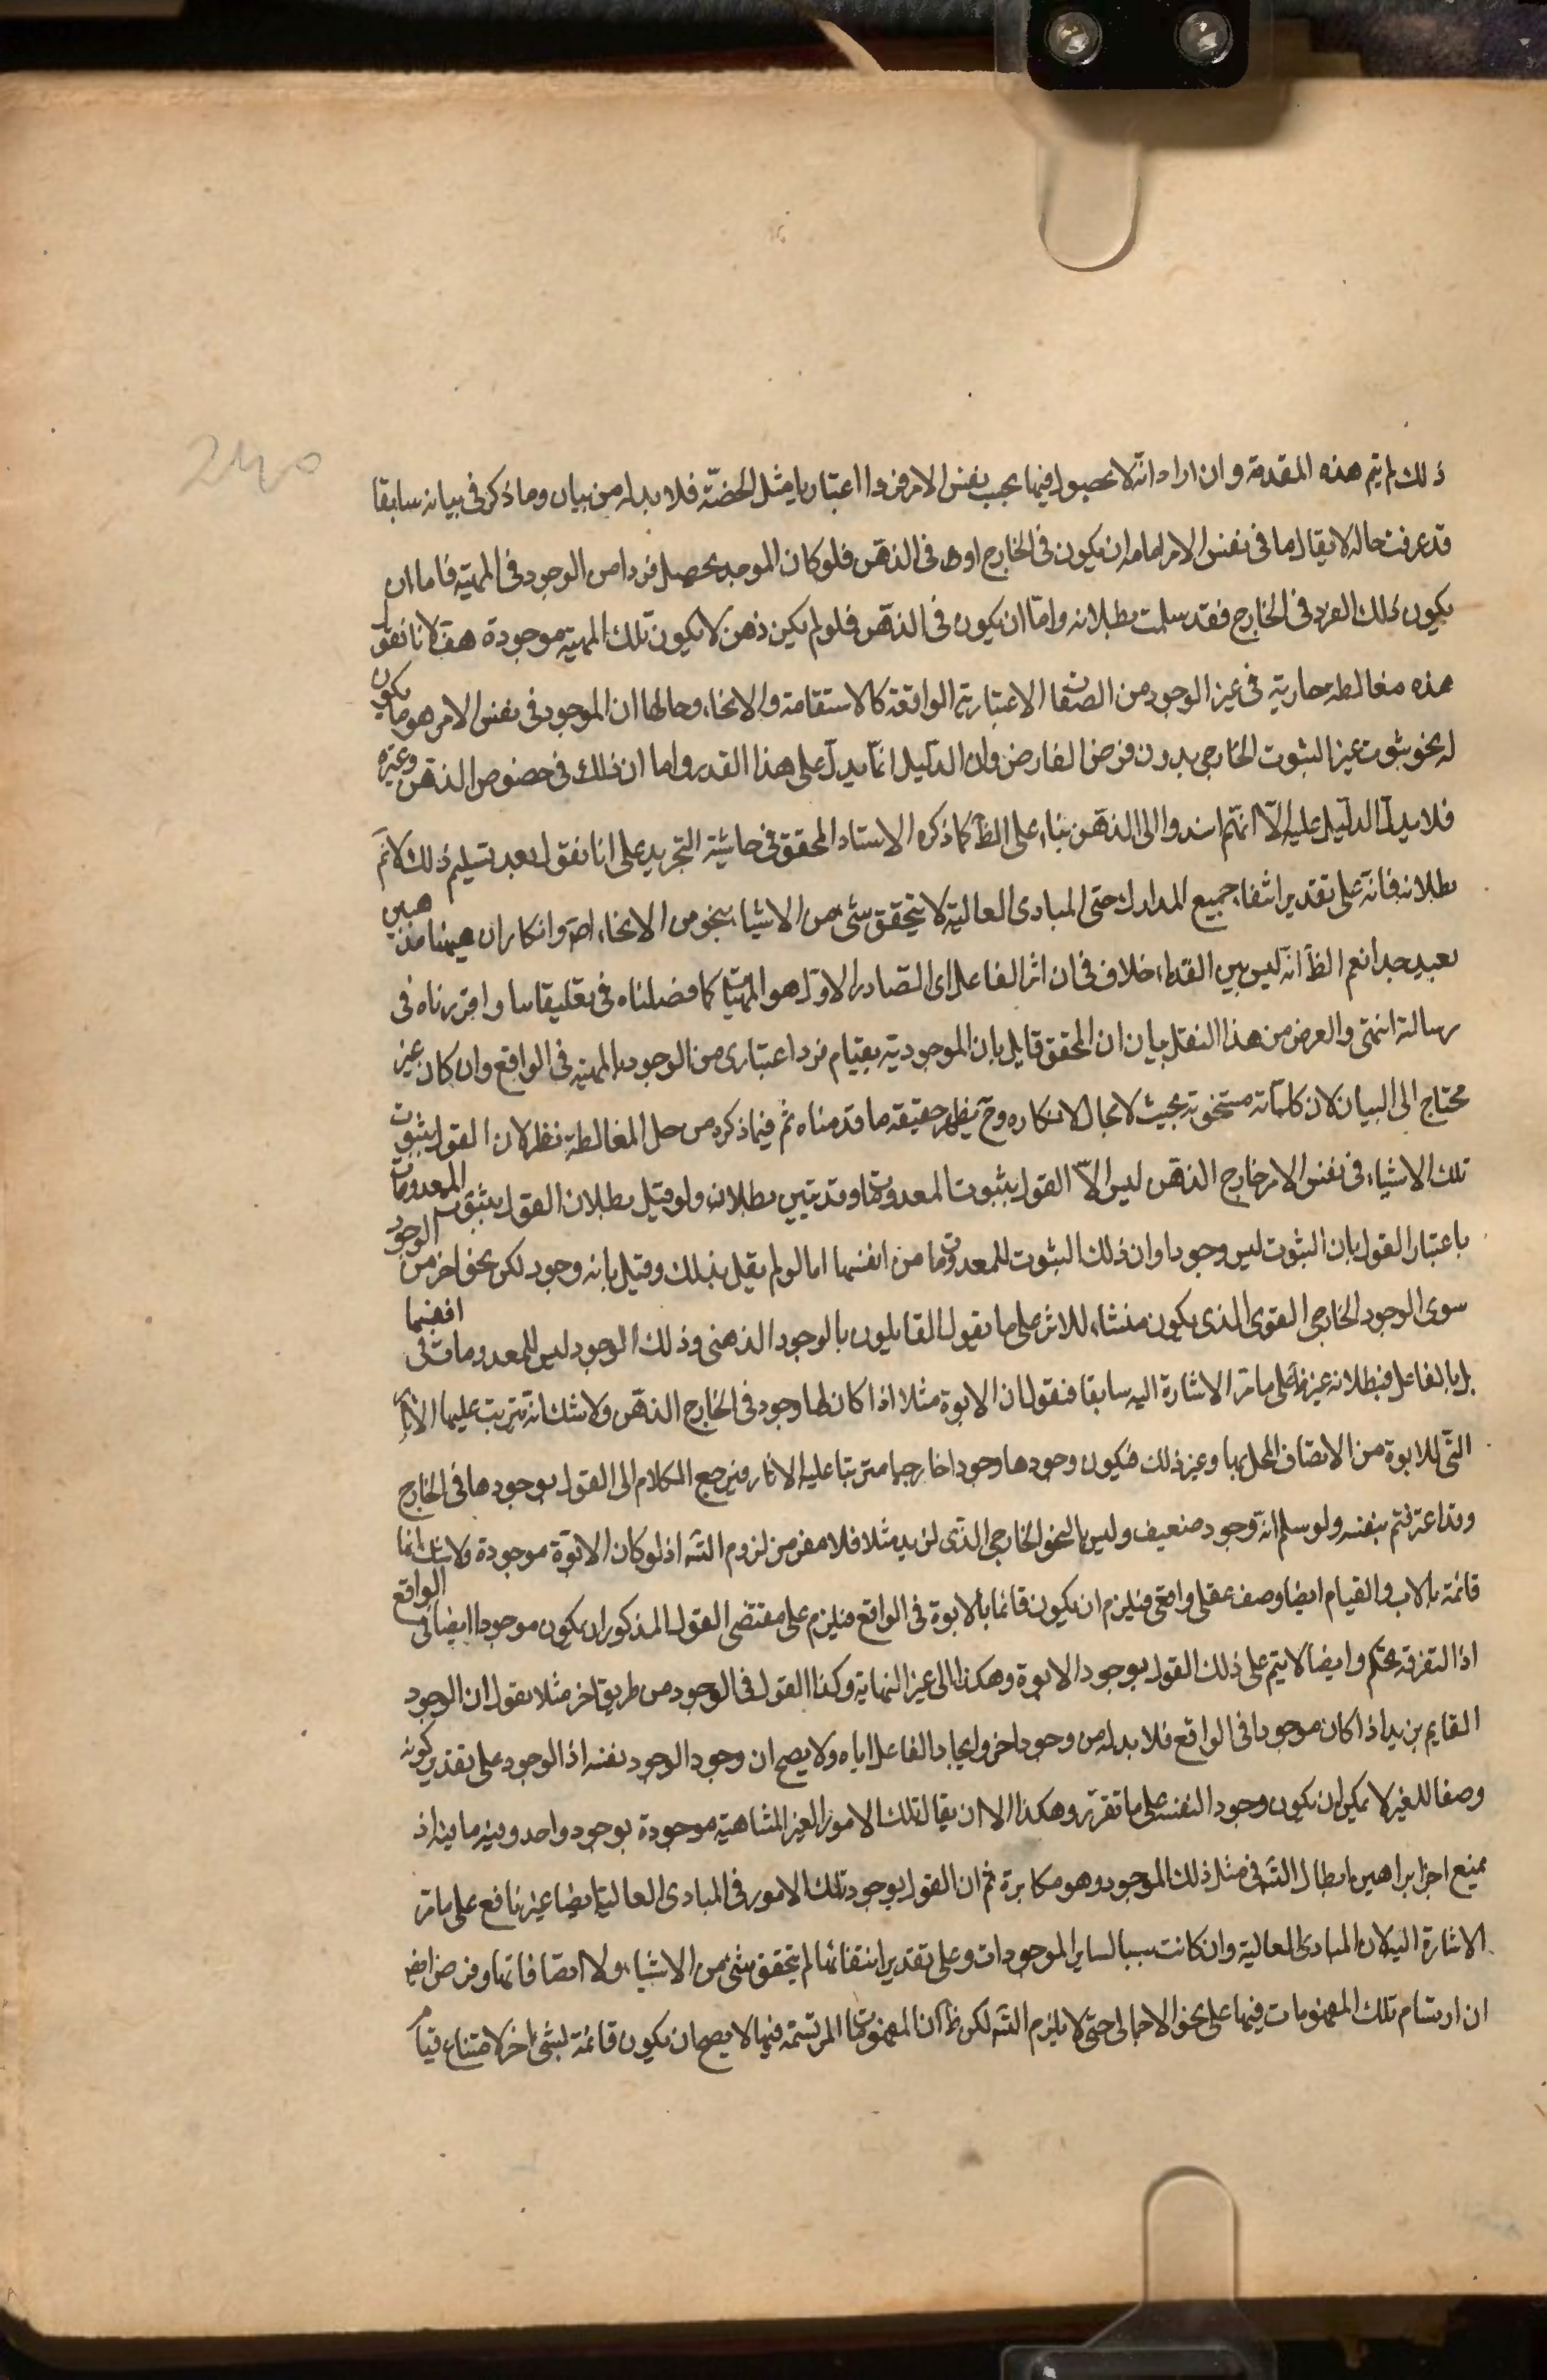 ذلك لم يتم هذه المقدمة وان اراد انه لا يحصل فيها بحسب نفس الامر فردا اعتباريا مثل الحصّة فلا بد له من بيان وما ذكر فى بيانه سابقا
قد عرفت حاله لا يقال ما فى نفس الامر اما ان يكون فى الخارج او فى الذهن فلو كان الموجد يحصل فردا من الوجود فى المهية فاما ان
يكون ذلك الفرد فى الخارج فقد سلمت بطلانه واما ان يكون فى الذهن فلو لم يكن ذهن لا يكون تلك المهية موجودة هف لانا نقول
هذه مغالطة جارية فى غير الوجود من الصفات الاعتبارية الواقعة كالاستقامة والانحاء وحلها ان الموجود فى نفس الامر هو ما يكون
له نحو ثبوت غير الثبوت الخارجى بدون فرض الفارض وان الدليل انما يدل على هذا القدر واما ان ذلك فى خصوص الذهن وغيره
فلا يدل الدليل عليه الا انهم اسندوا الى الذهن بناء على الظ كما ذكره الاستاد المحقق فى حاشية التجريد على انا نقول بعد تسليم ذلك لا نم
بطلانه فانه على تقدير انتفاء جميع المدارك حتى المبادى العالية لا يتحقق شئ من الاشياء بنحو من الانحاء اصلا وانكاران هيهنا
بعيد جدا نعم الظ انه ليس بين القدماء خلاف فى ان اثر الفاعل اى الصادر الاول هو المهيات كما فصلناه فى تعليقاتنا وافردناه فى
رسالة انتهى والغرض من هذا النقل بيان ان المحقق قايل بان الموجودية بقيام فرد اعتبارى من الوجود بالمهية فى الواقع وان كان غير
محتاج الى البيان لان كلماته مشحونة بحيث لا مجال لانكاره وح يظهر حقيقة ما قدمناه ثم فيما ذكره من حل المغالطة نظر لان القول بثبوت
تلك الاشياء فى نفس الامر خارج الذهن ليس الا القول بثبوت المعدومات وقد تبين بطلانه ولو قيل بطلان القول بثبوت المعدومات
باعتبار القول بان الثبوت ليس وجودا وان ذلك الثبوت للمعدومات من انفسها اما لو لم يقل بذلك وقيل بانه وجود لكن نحو اخر من الوجود
سوى الوجود الخارجى القوى الذى يكون منشاء للاثر على ما يقول القايلون بالوجود الذهنى وذلك الوجود ليس للمعدومات فى انفسها
بل بالفاعل فبطلانه غير ظ على ما مر الاشارة اليه سابقا فنقول ان الابوة مثلا اذا كان لها وجود فى الخارج الذهن ولا شك انه يترتب عليها الاثار
التى للابوة من الاتصاف المحل بها وغير ذلك فيكون وجودها وجودا خارجيا مترتبا عليه الاثار فيرجع الكلام الى القول بوجودها فى الخارج
وقد اعترفتم بنفسه ولو سلم انه وجود ضعيف وليس بالنحو الخارجى الذى لزيد مثلا فلا مفر من لزوم التسـ اذ لو كان الابوة موجودة ولا شك انها
قائمة بالاب والقيام ايضا وصف عقلى واقعى فيلزم ان يكون قائما بالابوة فى الواقع فيلزم على مقتضى القول المذكور ان يكون موجودا ايضا فى الواقع
اذ التفرقة تحكم وايضا لا يتم على ذلك القول بوجود الابوة وهكذا الى غير النهاية وكذا القول فى الوجود من طريق اخر مثلا نقول ان الوجود
القايم بزيد اذا كان موجودا فى الواقع فلا بد له من وجود اخر وايجاد الفاعل اياه ولا يصح ان وجود الوجود نفسه اذ الوجود على تقدير كونه
وصفا للغير لا يمكن ان يكون وجود النفسه على ما تقرر وهكذا الا ان يقال تلك الامور الغير المتناهية موجودة بوجود واحد وفيه ما فيه اذ
يمنع اجراء براهين ابطال التسـ فى مثل ذلك الموجود وهو مكابرة ثم ان القول بوجود تلك الامور فى المبادى العالية ايضا غير نافع على ما مر
الاشارة اليه لان المبادى العالية وان كانت سببا لساير الموجودات وعلى تقدير انتفائها لم يتحقق شئ من الاشياء ولا اتصافاتها وفرض ايضا
ان ارتسام تلك المفهومات فيها على نحو الاجمالى حتى لا يلزم التسـ لكن ظ ان المفهومات المرتسمة فيها لا يصح ان يكون قائمة لشئ اخر لامتناع قيام